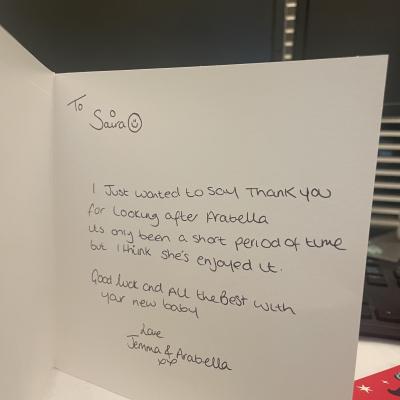 To
Saira
I Just wanted to say Thank you
for looking after Arabella
its only been a short period of time
but I think she's enjoyed it.
Good luck and All the Best with
your new baby
Love
Jemma & Arabella
xx